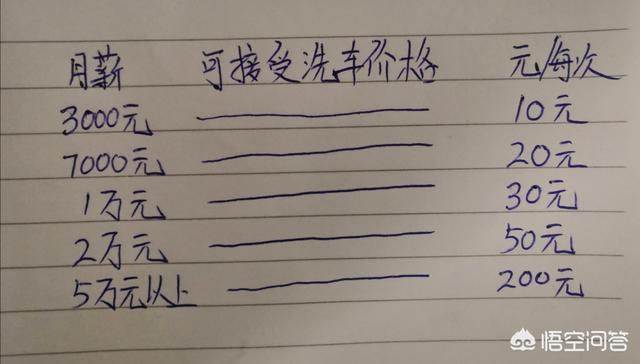 月薪 可接受洗车价格 元/每次
3000元 10元
7000元 20元
1万元 30元
2万元 50元
5万元以上 200元
悟空问答